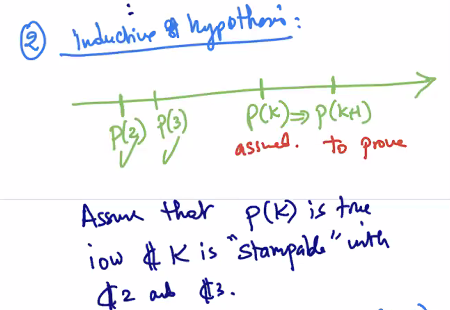 ② Inductive hypothesis:
P(2) P(3) P(K) ⇒ P(K+1)
assumed. to prove
Assume that P(K) is true
iow ₵ K is "stampable" with
₵2 and ₵3.